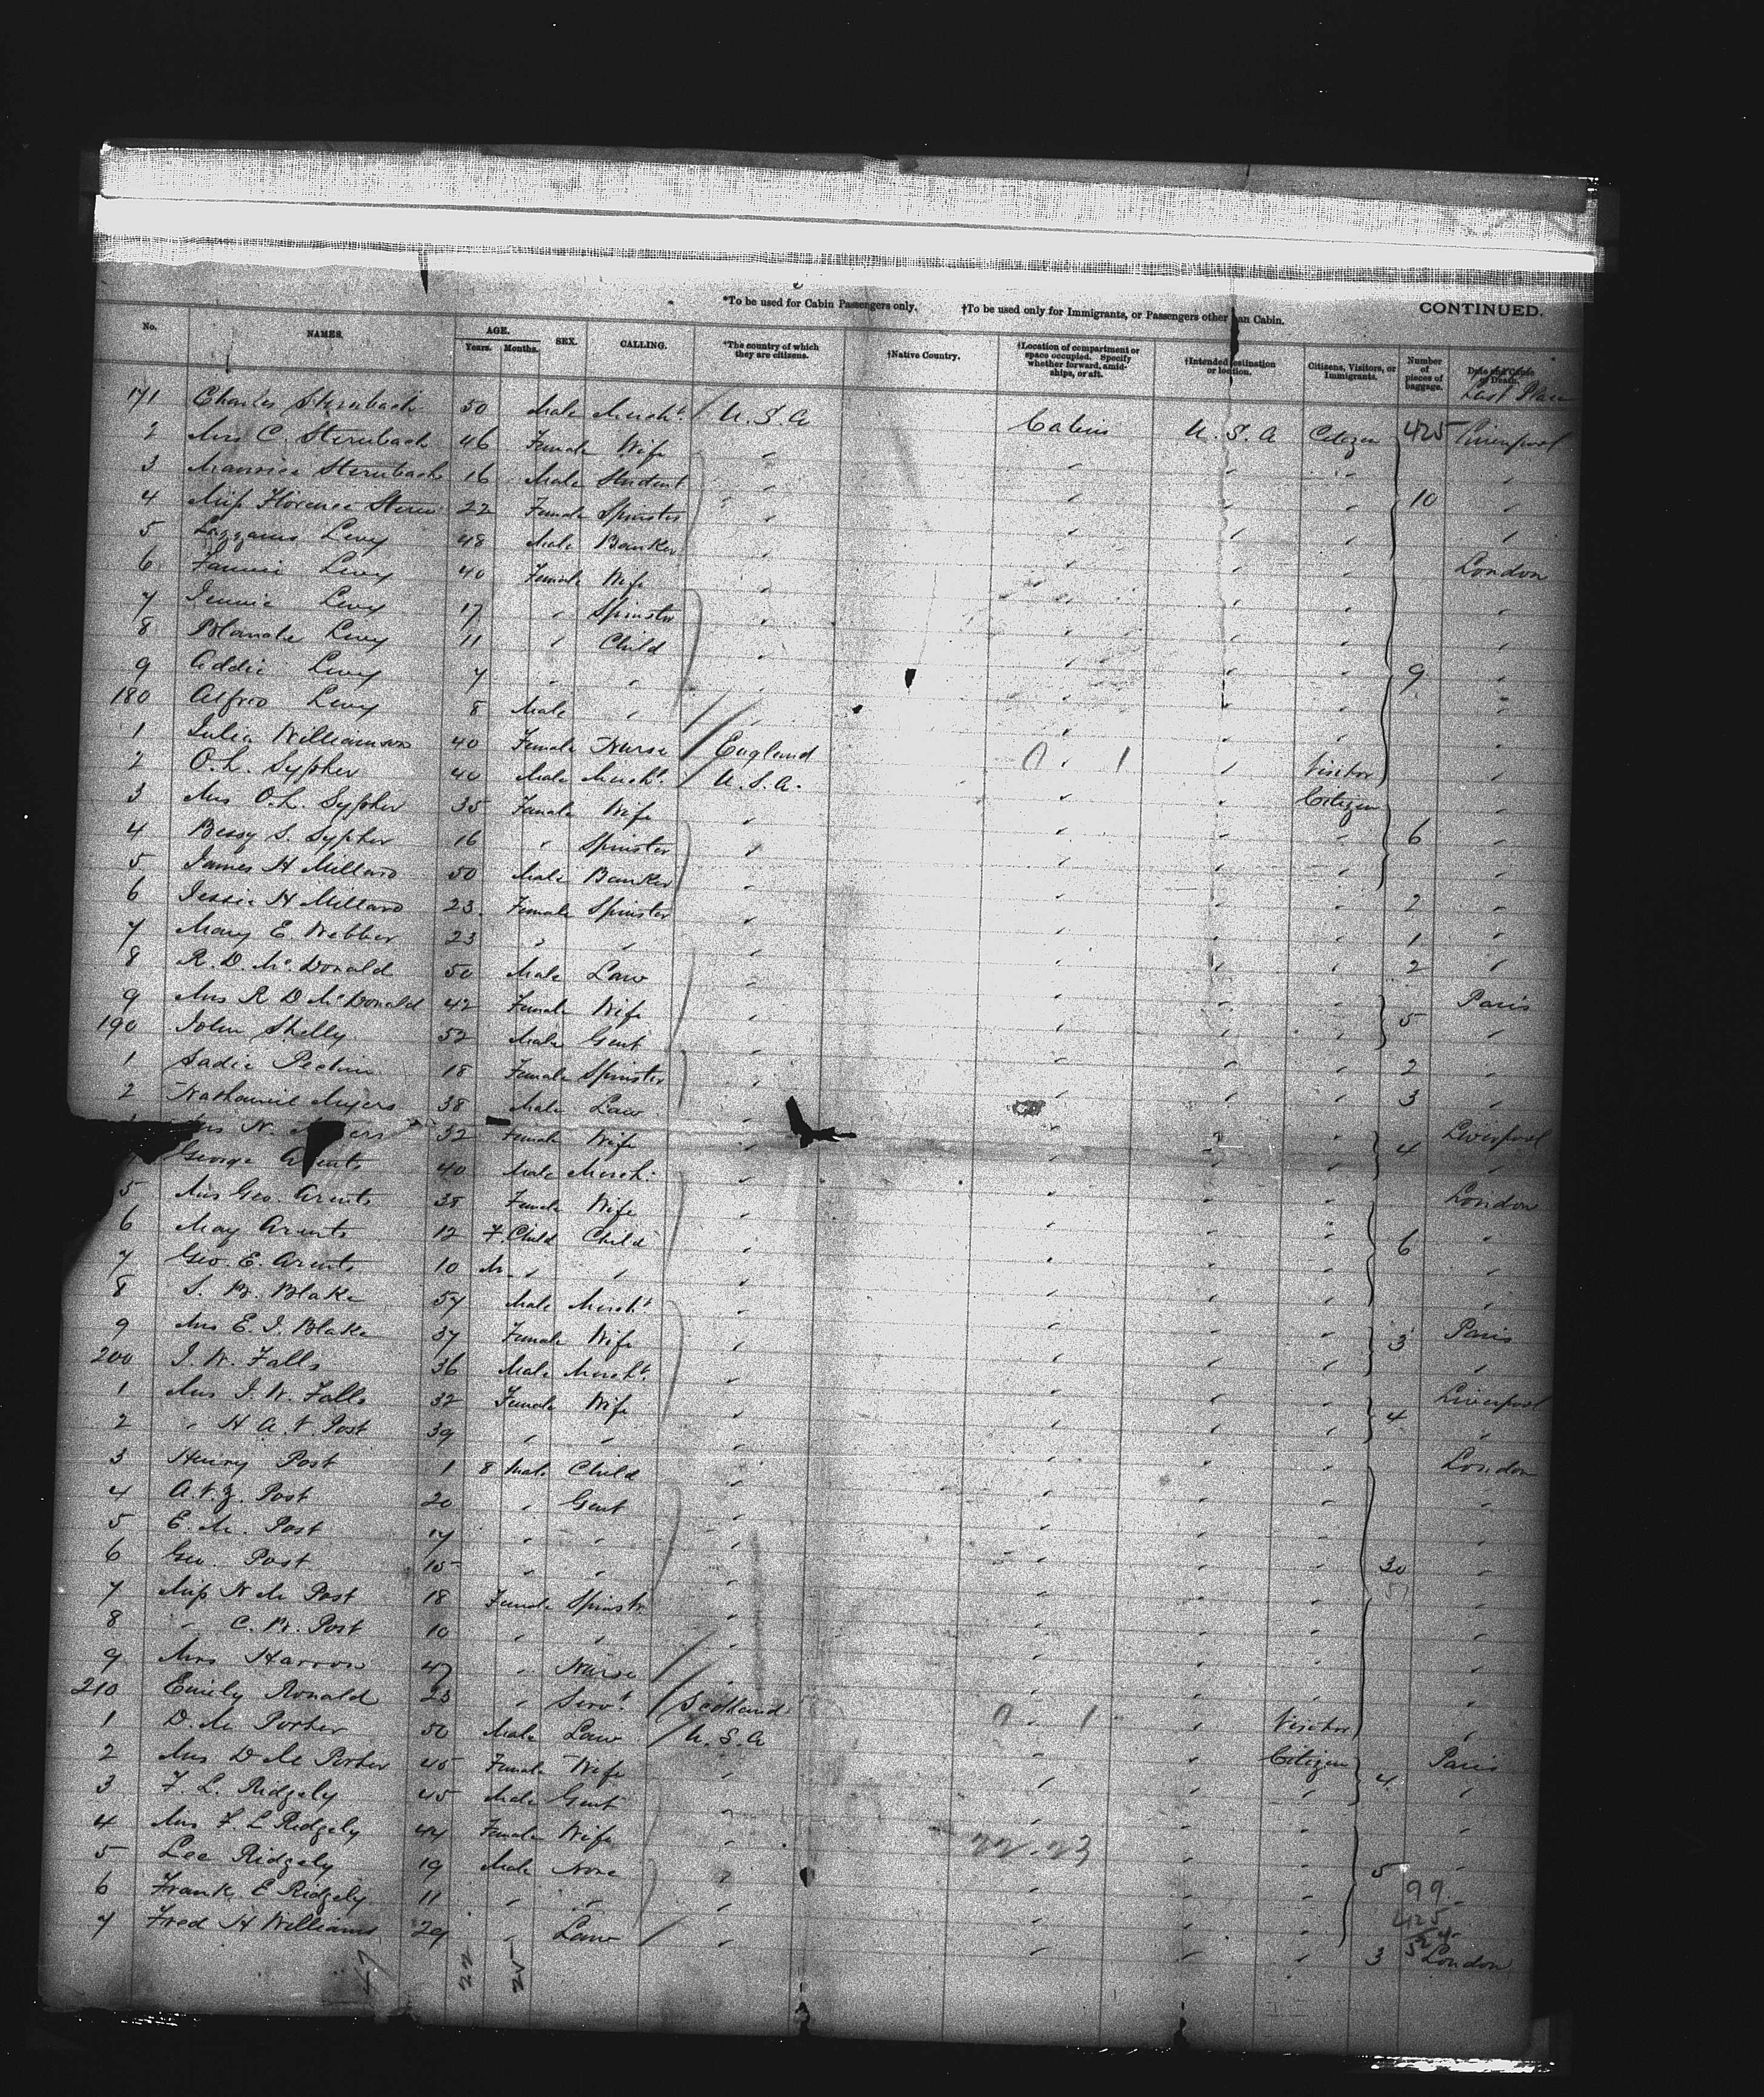 *To be used for Cabin Passengers only. †To be used only for Immigrants, or Passengers other than Cabin. CONTINUED.
No. NAMES. AGE. Years. Months. SEX. CALLING. *The country of which they are citizens. †Native Country. †Location of compartment or space occupied. Specify whether forward, amidships, or aft. †Intended destination or location. Citizens, Visitors, or Immigrants. Number of pieces of baggage. Date and Cause of Death. Last Place
171 Charles Sternbach 50 Male Mercht. U.S.A Cabin U.S.A Citizen 425 Liverpool
2 Mrs C. Sternbach 46 Female Wife " " " " "
3 Maurice Sternbach 16 Male Student " " " " 10 "
4 Miss Florence Stern 22 Female Spinster " " " " "
5 Lazzarus Levy 48 Male Banker " " " " London
6 Fannie Levy 40 Female Wife " " " " "
7 Jennie Levy 17 " Spinster " " " " "
8 Blanche Levy 11 " Child " " " " 9 "
9 Addie Levy 7 " " " " " " "
180 Alfred Levy 8 Male " " " " " "
1 Julia Williamson 40 Female Nurse England " " Visitor "
2 O.L. Sypher 40 Male Mercht. U.S.A. " " Citizen "
3 Mrs O.L. Sypher 35 Female Wife " " " " 6 "
4 Bessy S. Sypher 16 " Spinster " " " " "
5 James H Millard 50 Male Banker " " " " 2 "
6 Jessie H Millard 23 Female Spinster " " " " 1 "
7 Mary E. Webber 23 " " " " " " 2 "
8 R.D. McDonald 50 Male Law " " " " Paris
9 Mrs R D McDonald 42 Female Wife " " " " 5 "
190 John Shelly 52 Male Gent " " " " 2 "
1 Sadie 18 Female Spinster " " " " 3 "
2 Nathaniel Myers 38 Male Law " " " " Liverpool
Mrs N. Myers 32 Female Wife " " " " 4 "
George Arents 40 Male Merch. " " " " London
5 Mrs Geo. Arents 38 Female Wife " " " " "
6 May Arents 12 F. Child Child " " " " 6 "
7 Geo. E. Arents 10 M. " " " " " " "
8 S. B. Blake 57 Male Mercht " " " " Paris
9 Mrs E. J. Blake 37 Female Wife " " " " 3 "
200 J. W. Falls 36 Male Mercht. " " " " Liverpool
1 Mrs J. W. Falls 32 Female Wife " " " " 4 "
2 " H A. V. Post 39 " " " " " " London
3 Henry Post 1 8 Male Child " " " " "
4 A.V.Z. Post 20 " Gent " " " " "
5 E. M. Post 17 " " " " " " 30 "
6 Geo. Post 15 " " " " " " "
7 Miss N M Post 18 Female Spinstr. " " " " "
8 " C. B. Post 10 " " " " " " "
9 Mrs Harrow 47 " Nurse " " " " "
210 Emily Ronald 23 " Servt. Scotland " " Visitor "
1 D. M. Porter 50 Male Law U.S.A " " Citizen Paris
2 Mrs D M Porter 45 Female Wife " " " " 4 "
3 F. L. Ridgely 45 Male Gent " " " " "
4 Mrs F. L Ridgely 44 Female Wife " " " " "
5 Lee Ridgely 19 Male None " " " " 5 "
6 Frank E Ridgely 11 " " " " " " "
7 Fred H Williams 29 " Law " " " " 3 London
99
425
524
22 23
22 25